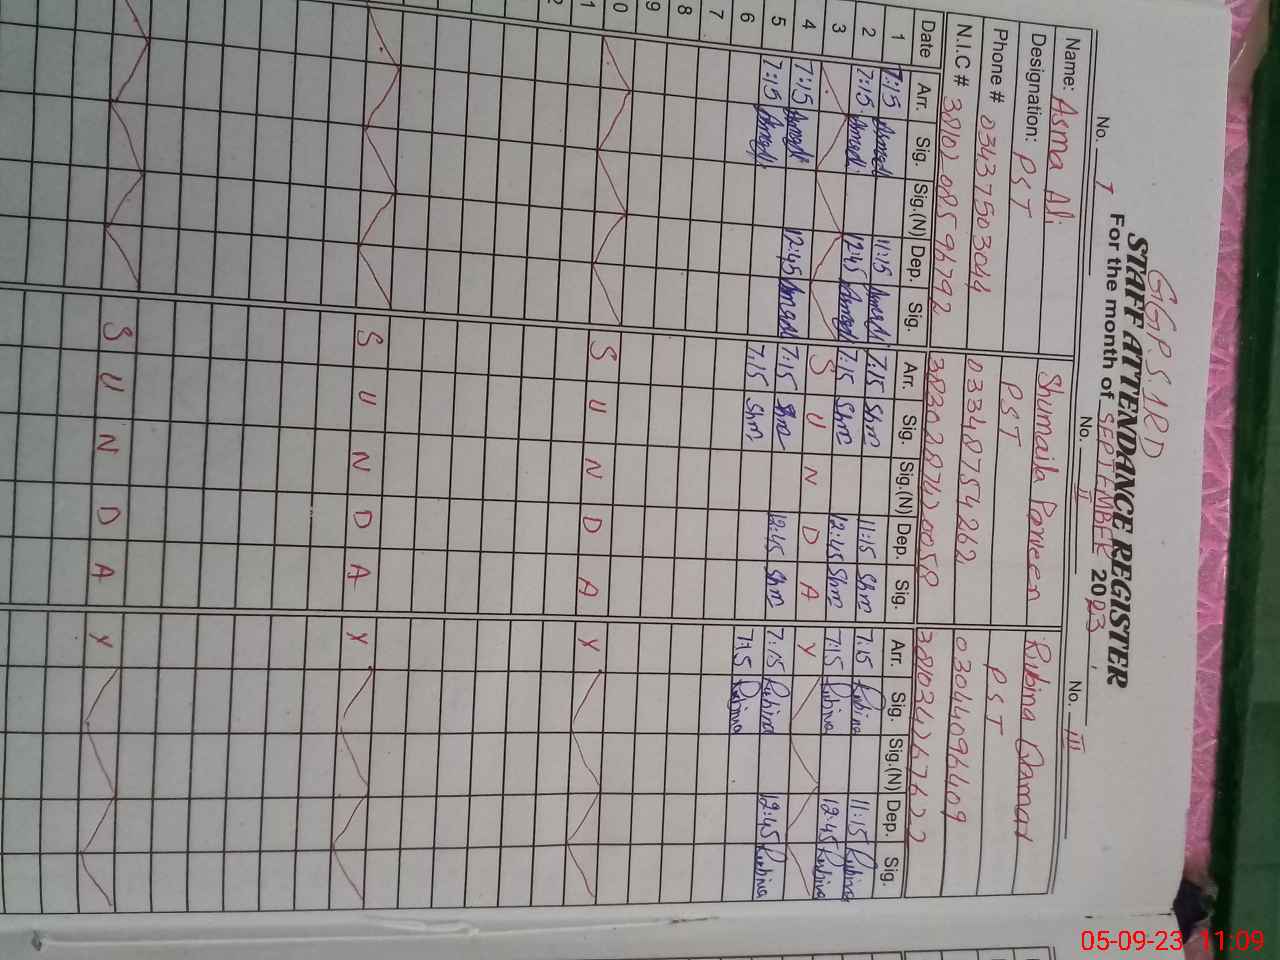 GGP.S.1RD
STAFF ATTENDANCE REGISTER
For the month of SEPTEMBER 2023
No. I No. II No. III
Name: Asma Ali Shumaila Parveen Rubina Qamar
Designation: PST PST PST
Phone # 03437503044 03348754262 03044096409
N.I.C #
Date Arr. Sig. Sig.(N) Dep. Sig. Arr. Sig. Sig.(N) Dep. Sig. Arr. Sig. Sig.(N) Dep. Sig.
1 7:15 Asmaali 11:15 Asmaali 7:15 Shm 11:15 Shm 7:15 Rubina 11:15 Rubina
2 7:15 Asmaali 12:45 Asmaali 7:15 Shm 12:45 Shm 7:15 Rubina 12:45 Rubina
3 S U N D A Y
4 7:15 Asmaali 12:45 Asmaali 7:15 Shm 12:45 Shm 7:15 Rubina 12:45 Rubina
5 7:15 Asmaali 7:15 Shm 7:15 Rubina
6
7
8
9
0 S U N D A Y
1
2
S U N D A Y
S U N D A Y
05-09-23 11:09